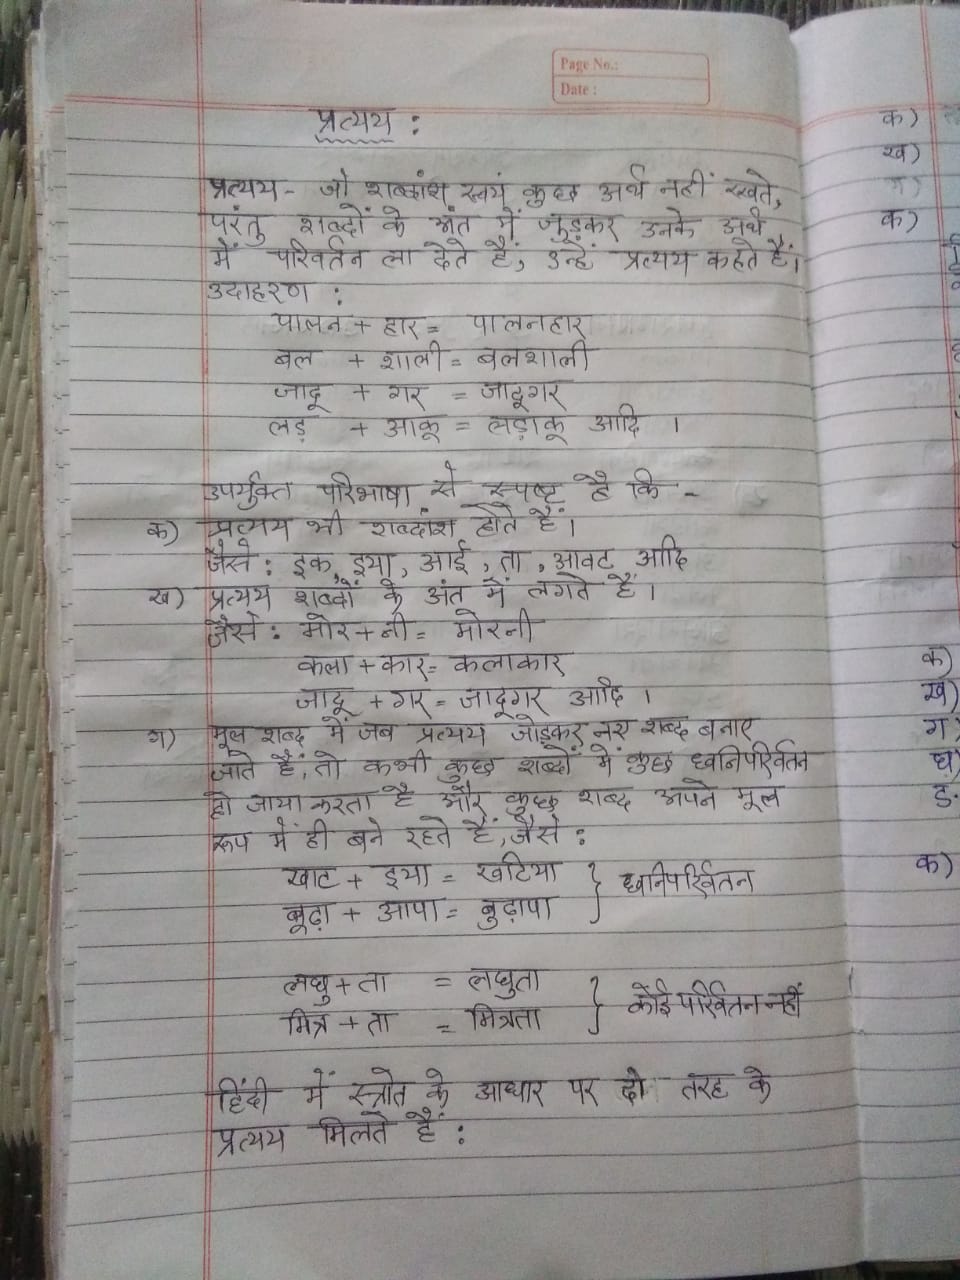 Page No.:
Date :
प्रत्यय :
प्रत्यय - जो शब्दांश स्वयं कुछ अर्थ नहीं रखते,
परंतु शब्दों के अंत में जुड़कर उनके अर्थ
में परिवर्तन ला देते हैं, उन्हें प्रत्यय कहते हैं।
उदाहरण :
पालन + हार = पालनहार
बल + शाली = बलशाली
जादू + गर = जादूगर
लड़ + आकू = लड़ाकू आदि ।
उपर्युक्त परिभाषा से स्पष्ट है कि -
क) प्रत्यय भी शब्दांश होते हैं।
जैसे : इक, इया, आई, ता, आवट आदि
ख) प्रत्यय शब्दों के अंत में लगते हैं।
जैसे : मोर + नी = मोरनी
कला + कार = कलाकार
जादू + गर = जादूगर आदि ।
ग) मूल शब्द में जब प्रत्यय जोड़कर नए शब्द बनाए
जाते हैं, तो कभी कुछ शब्दों में कुछ ध्वनिपरिर्वतन
हो जाया करता है और कुछ शब्द अपने मूल
रूप में ही बने रहते हैं, जैसे :
खाट + इया = खटिया } ध्वनिपरिर्वतन
बूढ़ा + आपा = बुढ़ापा
लघु + ता = लघुता } कोई परिर्वतन नहीं
मित्र + ता = मित्रता
हिंदी में स्त्रोत के आधार पर दो तरह के
प्रत्यय मिलते हैं :
क)
ख)
ग)
क)
क)
ख)
ग)
घ)
ङ.
क)